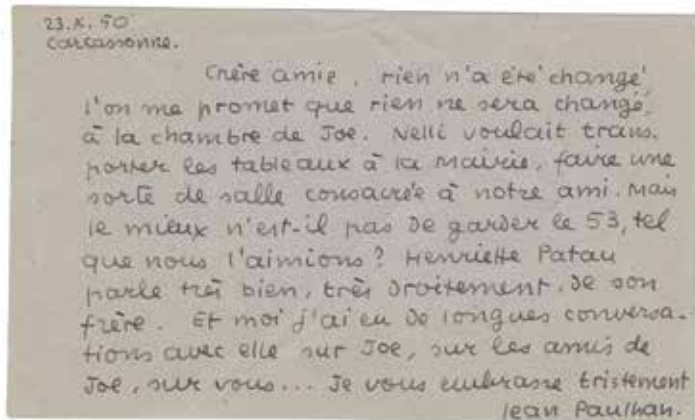 23.X.50
Carcassonne.
Chère amie, rien n'a été changé
l'on me promet que rien ne sera changé,
à la chambre de Joe. Nelli voulait trans.
porter les tableaux à la Mairie, faire une
sorte de salle consacrée à notre ami. Mais
le mieux n'est-il pas de garder le 53, tel
que nous l'aimions? Henriette Patau
parle très bien, très droitement, de son
frère. Et moi j'ai eu de longues conversa-
tions avec elle sur Joe, sur les amis de
Joe, sur vous... Je vous embrasse tristement
Jean Paulhan.